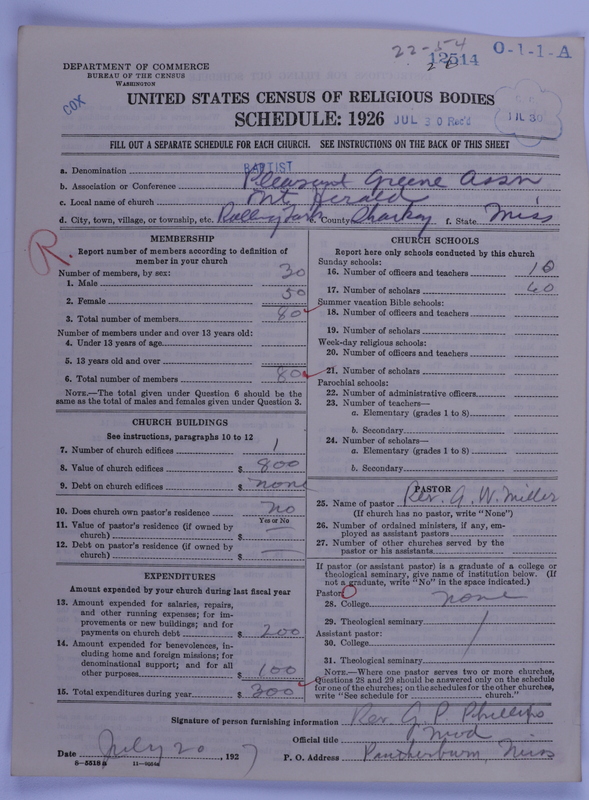 22-54
12514
28
O-1-1-A
DEPARTMENT OF COMMERCE
BUREAU OF THE CENSUS
WASHINGTON
COX
UNITED STATES CENSUS OF RELIGIOUS BODIES
SCHEDULE: 1926
JUL 30 Rec'd
JUL 30
FILL OUT A SEPARATE SCHEDULE FOR EACH CHURCH. SEE INSTRUCTIONS ON THE BACK OF THIS SHEET
a. Denomination BAPTIST
b. Association or Conference Pleasant Greene Assn
c. Local name of church Mt Herald
d. City, town, village, or township, etc. Rolling Fork e. County Sharkey f. State Miss
R.
MEMBERSHIP
Report number of members according to definition of
member in your church
Number of members, by sex:
1. Male 30
2. Female 50
3. Total number of members 80
Number of members under and over 13 years old:
4. Under 13 years of age
5. 13 years old and over
6. Total number of members 80
NOTE.—The total given under Question 6 should be the
same as the total of males and females given under Question 3.
CHURCH BUILDINGS
See instructions, paragraphs 10 to 12
7. Number of church edifices 1
8. Value of church edifices $ 800
9. Debt on church edifices $ none
10. Does church own pastor's residence no
Yes or No
11. Value of pastor's residence (if owned by
church) $ —
12. Debt on pastor's residence (if owned by
church) $ —
EXPENDITURES
Amount expended by your church during last fiscal year
13. Amount expended for salaries, repairs,
and other running expenses; for im-
provements or new buildings; and for
payments on church debt $ 200
14. Amount expended for benevolences, in-
cluding home and foreign missions; for
denominational support; and for all
other purposes $ 100
15. Total expenditures during year $ 300
CHURCH SCHOOLS
Report here only schools conducted by this church
Sunday schools:
16. Number of officers and teachers 10
17. Number of scholars 60
Summer vacation Bible schools:
18. Number of officers and teachers
19. Number of scholars
Week-day religious schools:
20. Number of officers and teachers
21. Number of scholars
Parochial schools:
22. Number of administrative officers
23. Number of teachers—
a. Elementary (grades 1 to 8)
b. Secondary
24. Number of scholars—
a. Elementary (grades 1 to 8)
b. Secondary
PASTOR
25. Name of pastor Rev. G. W. Miller
(If church has no pastor, write "None")
26. Number of ordained ministers, if any, em-
ployed as assistant pastors
27. Number of other churches served by the
pastor or his assistants
If pastor (or assistant pastor) is a graduate of a college or
theological seminary, give name of institution below. (If
not a graduate, write "No" in the space indicated.)
Pastor:
28. College none
29. Theological seminary
Assistant pastor:
30. College
31. Theological seminary
NOTE.—Where one pastor serves two or more churches,
Questions 28 and 29 should be answered only on the schedule
for one of the churches; on the schedules for the other churches,
write "See schedule for church."
Signature of person furnishing information Rev. G. P. Phillips
Official title Mod
Date July 20, 1927 P. O. Address Pantherburn, Miss
8—5518a 11—9564a